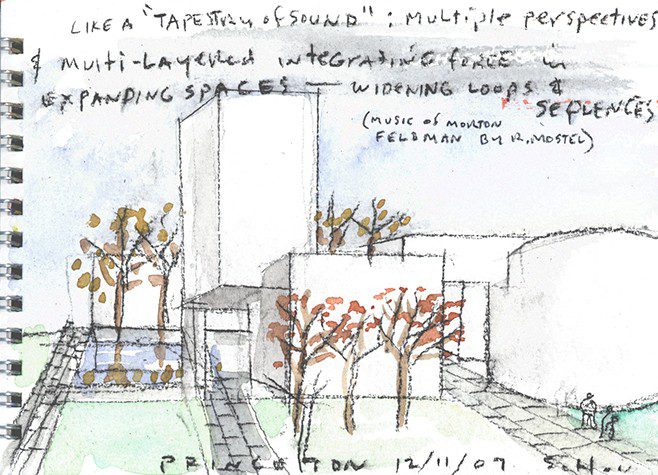 LIKE A "TAPESTRY OF SOUND" : MULTIPLE PERSPECTIVES
& MULTI-LAYERED INTEGRATING FORCE IN
EXPANDING SPACES — WIDENING LOOPS &
SEQUENCES
(MUSIC OF MORTON
FELDMAN BY R. MOSTEL)
PRINCETON 12/11/07 S.H.